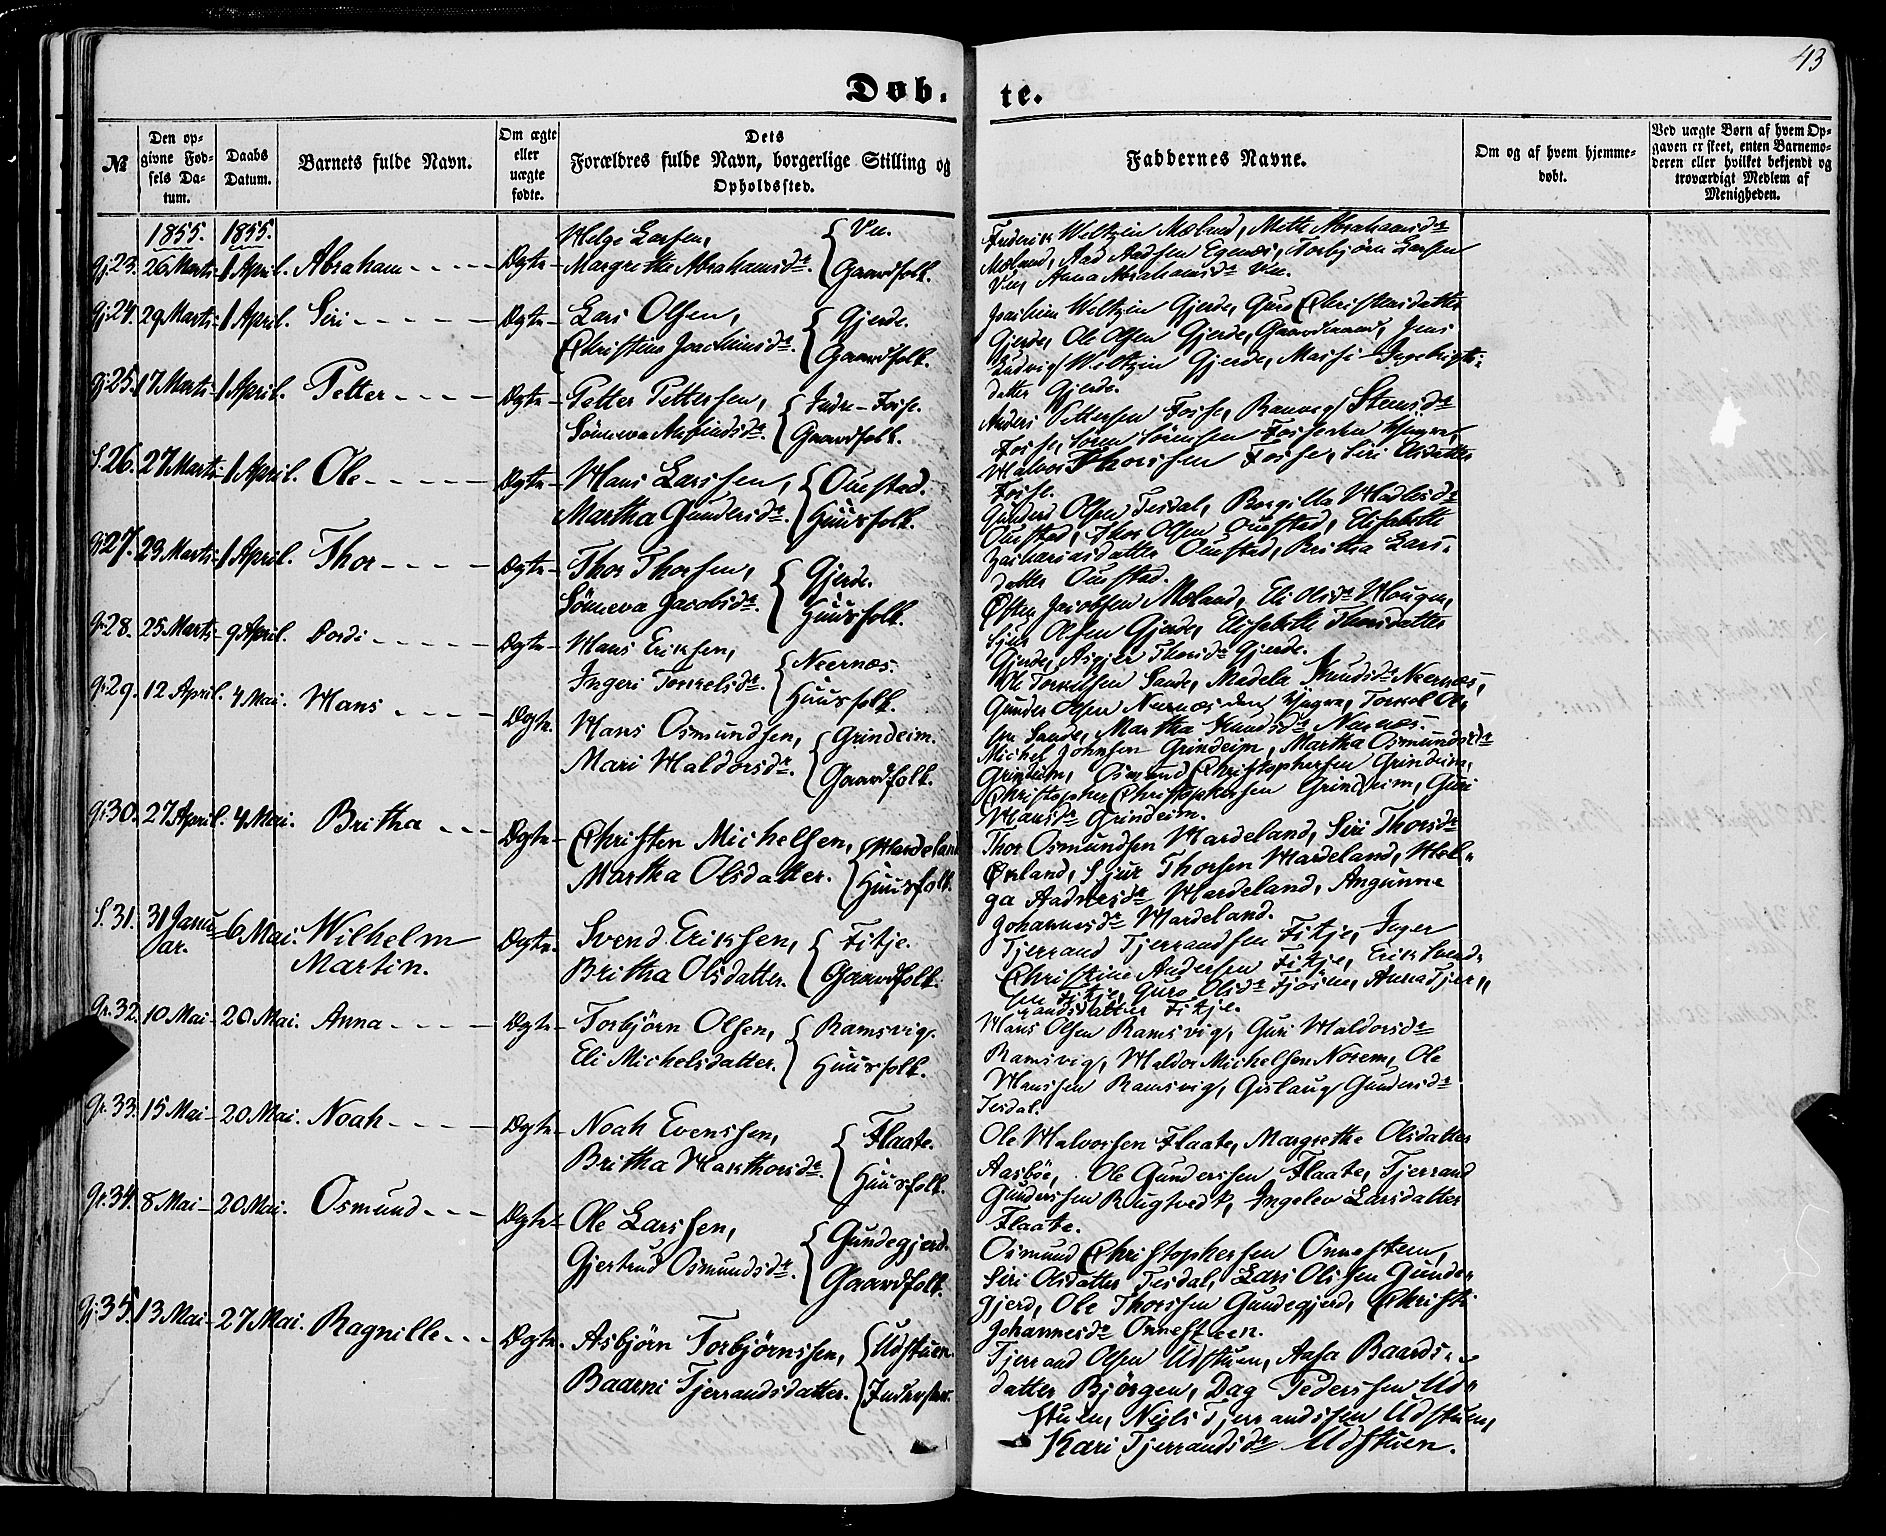 43
Døb- te.
№
Den op-
givne Fød-
sels Da-
tum.
Daabs
Datum.
Barnets fulde Navn.
Om ægte
eller
uægte
fødte.
Dets
Forældres fulde Navn, borgerlige Stilling og
Opholdssted.
Faddernes Navne.
Om og af hvem hjemme-
døbt.
Ved uægte Børn af hvem Op-
gaven er skeet, enten Barnemo-
deren eller hvilket bekjendt og
troværdigt Medlem af
Menigheden.
1855. 1855.
23. 26 Marts 1 April. Abraham Ægte
Helge Larsen,
Margrethe Abrahamsdr. Gaardfolk.
Frederik Weltzin Mæland, Mette Abrahamsdr
Mæland, Aad Aadsen Egenæs, Torbjörn Larsen
Anna Abrahamsdr
24. 29 Marts 1 April. Siri Ægte
Lars Olsen, Gjerde.
Christine Joachimsdr. Gaardfolk.
Joachim Weltzin Gjerde, Guro Christensdatter
Gjerde, Ole Olsen Gjerde, Gaardmænd, Jens
Ludvig Weltzin Gjerde, Massi Ingebrigts-
datter Gjerde.
25. 17 Marts 1 April. Petter Ægte
Petter Pettersen, Indre-Fosse.
Sönneva Gaardfolk.
Anders Pettersen Fosse, Ranveig Steensdr
Fosse, Sören Sörensen Fosse den Yngre,
Halvor Thorssen Fosse, Siri Olsdatter
Fosse.
26. 27 Marts 1 April. Ole Ægte
Hans Larssen, Ouestad.
Martha Gundersdr. Huusfolk.
Gunder Olsen Tesdal, Borgilla Hadlesdr
Ouestad, Thor Olsen Ouestad, Elisabeth
Zachariasdatter Ouestad, Britha Lars-
datter Ouestad.
27. 23 Marts 1 April. Thor Ægte
Thor Thorsen, Gjerde.
Sönneva Jacobsdr. Huusfolk.
Östen Jacobsen Mæland, Eli Olsdr Hougen,
Sjur Olsen Gjerde, Elisabeth Thorsdatter
Gjerde, Asgjer Thorsdr Gjerde.
28. 25 Marts 9 April. Dordi Ægte
Hans Eriksen, Neernæs.
Ingeri Torkelsdr. Huusfolk.
Ole Torkelsen Sande, Madela Knudsdr Neernæs,
Gunder Olsen Neernæs den Yngre, Torkel Ol-
sen Sande, Martha Knudsdr Nernæs.
29. 12 April. 4 Mai. Hans Ægte.
Hans Osmundsen, Grindeim.
Mari Haldorsdr. Gaardfolk.
Michel Johnsen Grindeim, Martha Osmundsdr
Grindeim, Osmund Christophersen Grindeim,
Christopher Christophersen Grindeim, Guri
Hansdr Grindeim.
30. 27 April. 4 Mai. Britha Ægte
Christen Michelsen, Hardeland
Martha Olsdatter. Huusfolk.
Thor Osmundsen Hardeland, Siri Thorsdr
Örland, Sjur Thorsen Hardeland, Hel-
ga Aadnesdr Hardeland, Angunne
Johannesdr Hardeland.
31. 31 Janu-
ar. 6 Mai. Wilhelm
Martin. Ægte
Svend Eriksen, Fitje.
Britha Olsdatter. Gaardfolk.
Tjerrand Tjerrandsen Fitje, Inger
Christine Andersen Fitje, Erik Svend-
sen Fitje, Guro Olsdr Fjösne, Anna Tjer-
randsdatter Fitje.
32. 10 Mai 20 Mai. Anna Ægte
Torbjörn Olsen, Ramsvig.
Eli Michelsdatter. Huusfolk.
Hans Olsen Ramsvig, Guri Haldorsdr
Ramsvig, Haldor Michelsen Norem, Ole
Hanssen Ramsvig, Gislaug Gundersdr
Tesdal.
33. 15 Mai 20 Mai. Noah Ægte
Noah Evenssen, Flaate.
Britha Hakthorsdr. Huusfolk.
Ole Halvorsen Flaate, Margrethe Olsdatter
Aasböe, Ole Gunderssen Flaate, Tjerrand
Gunderssen Rugtvedt, Ingelev Larsdatter
Flaate.
34. 8 Mai 20 Mai. Osmund Ægte
Ole Larssen, Gundegjerd.
Gjertrud Osmundsdr. Gaardfolk.
Osmund Christophersen Onnesteen,
Siri Olsdatter Tesdal, Lars Olssen Gunde-
gjerd, Ole Thorssen Gundegjerd, Christi
Johannesdr Onnesteen.
35. 13 Mai 27 Mai. Ragnille Ægte.
Asbjörn Torbjörnssen, Udstuen.
Baarni Tjerrandsdatter. Inderster.
Tjerrand Olsen Udstuen, Aasa Baards-
datter Bjørgen, Dag Pederssen Ud-
stuen, Niels Tjerrandssen Udstuen,
Kari Tjerrandsdr Udstuen.